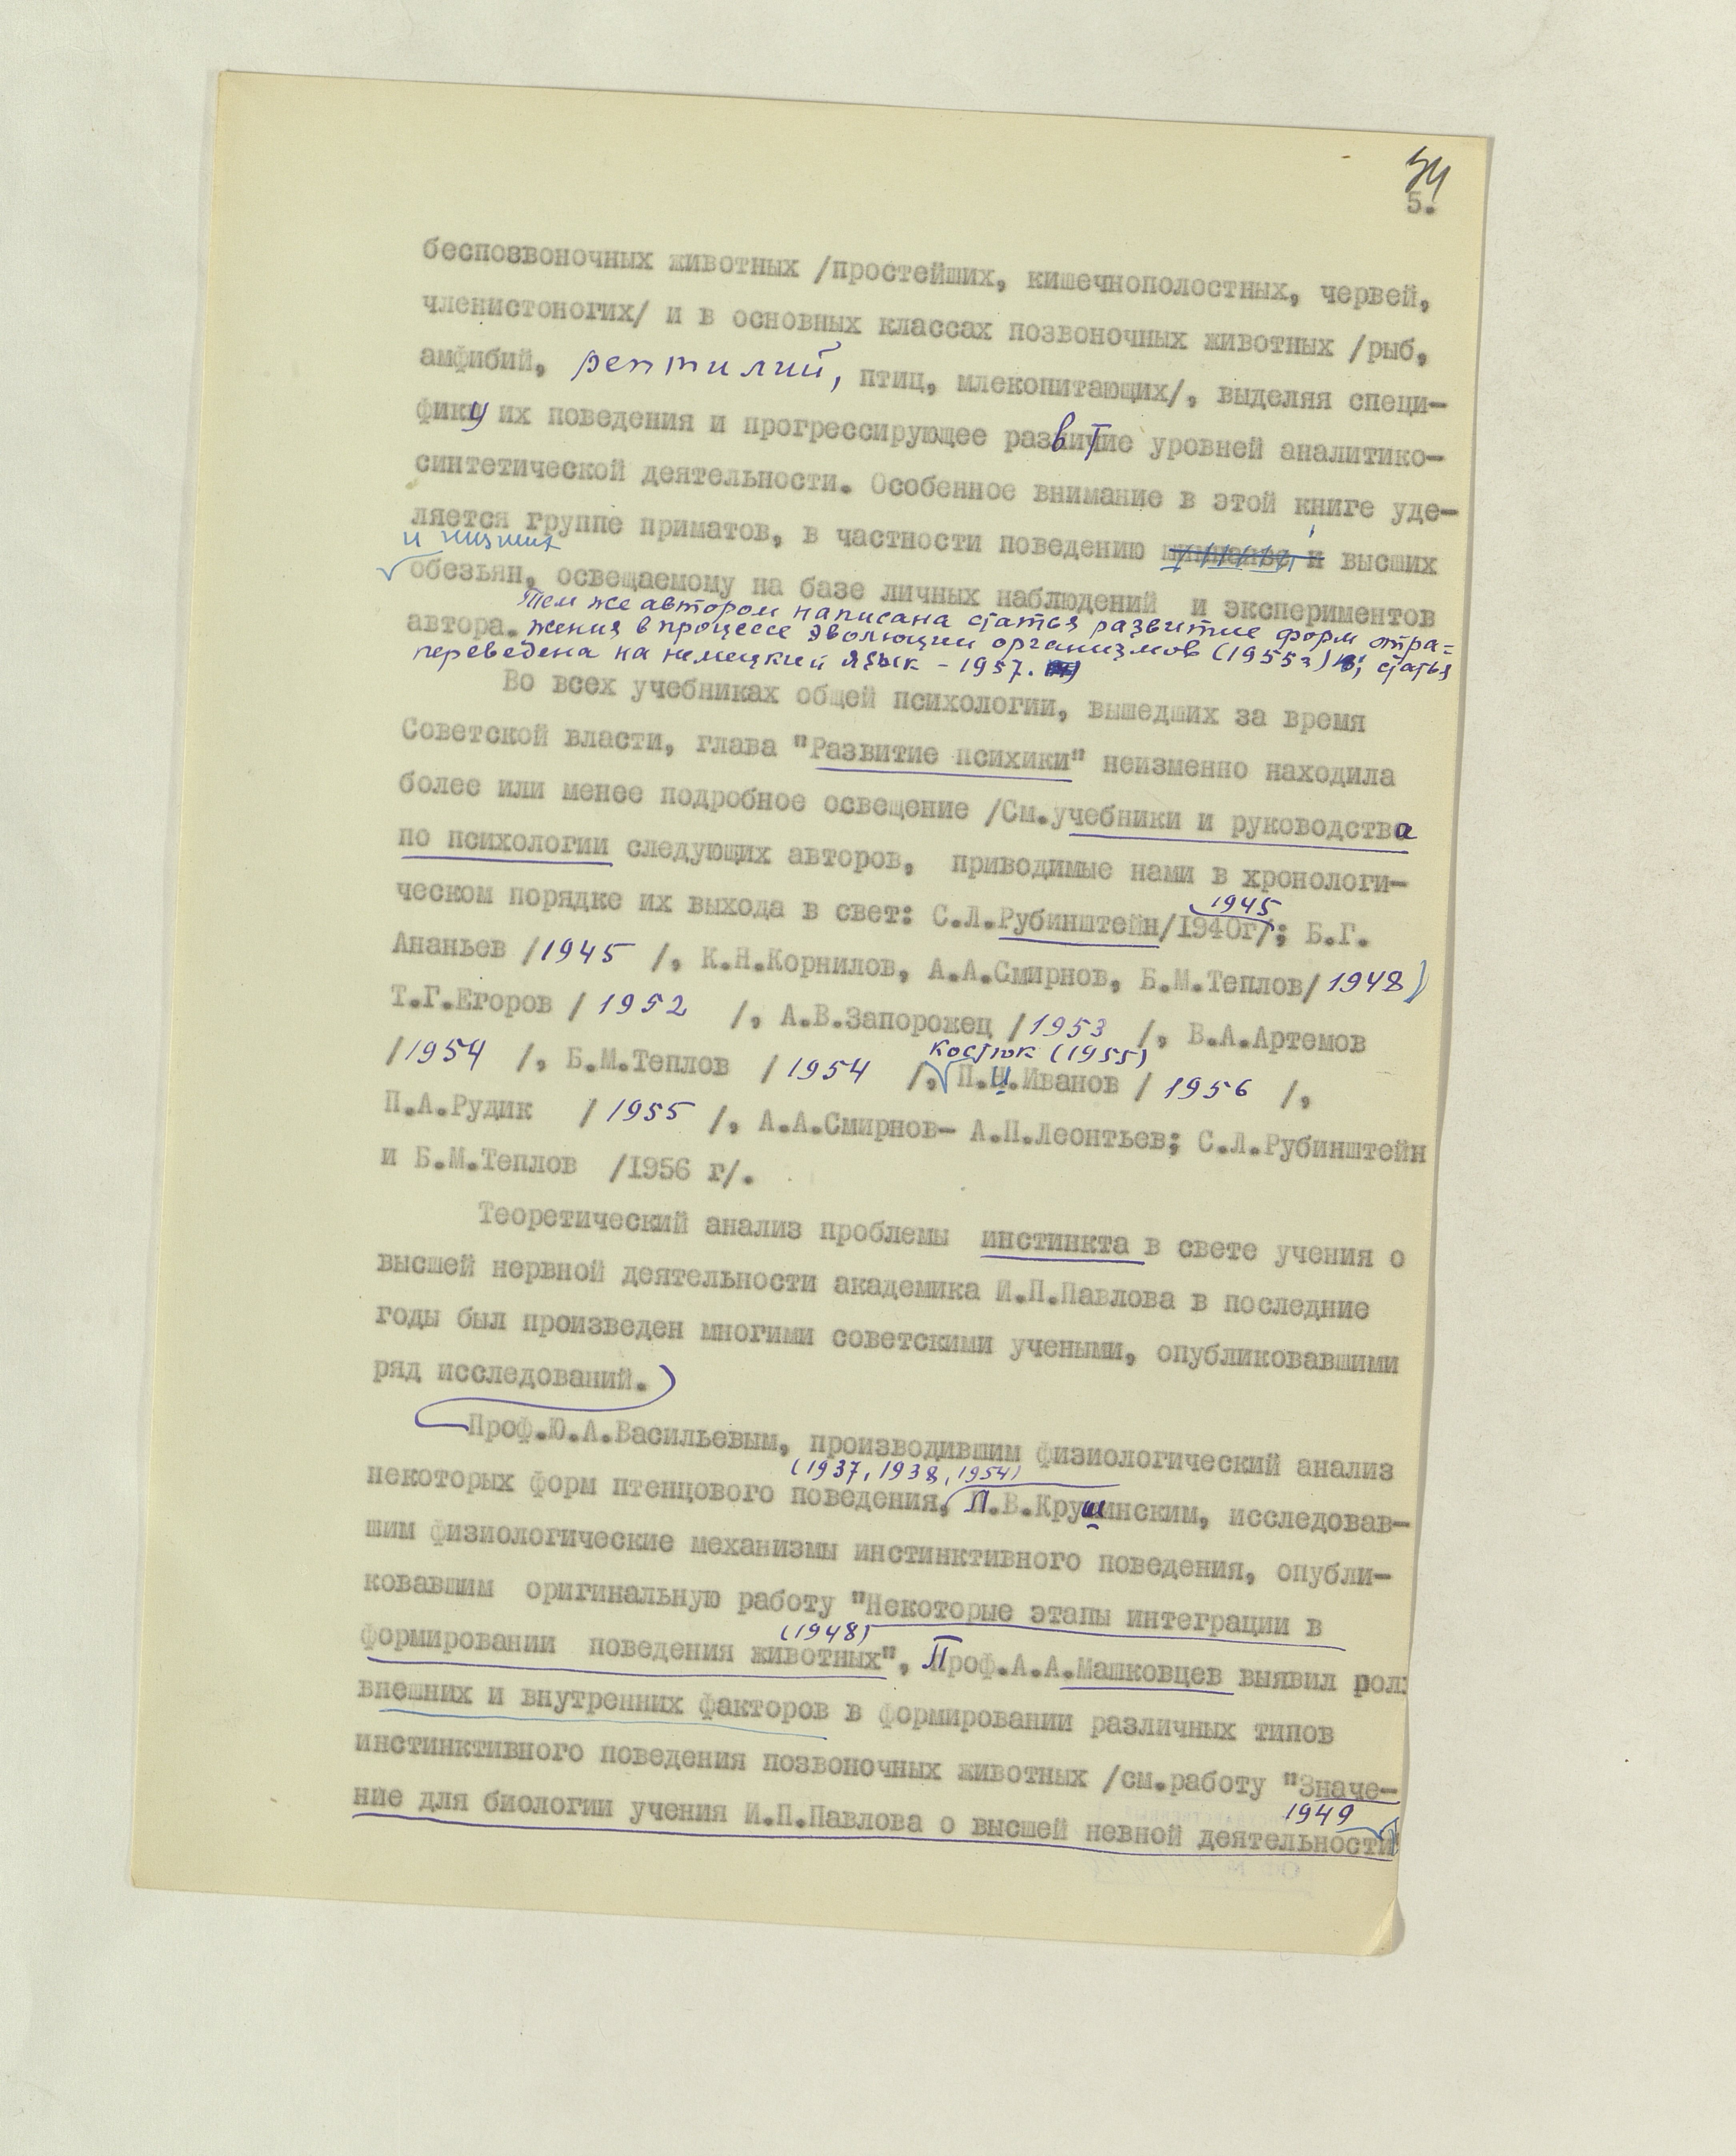 54
5.
беспозвоночных животных /простейших, кишечнополостных, червей,
членистоногих/ и в основных классах позвоночных животных /рыб,
амфибий, рептилий, птиц, млекопитающих/, выделяя специ-
фику их поведения и прогрессирующее развитие уровней аналитико-
синтетической деятельности. Особенное внимание в этой книге уде-
ляется группе приматов, в частности поведению высших
и низших
обезьян, освещаемому на базе личных наблюдений и экспериментов
автора. Тем же автором написана статья развитие форм отра=
жения в процессе эволюции организмов (1955г); статья
переведена на немецкий язык - 1957.
Во всех учебниках общей психологии, вышедших за время
Советской власти, глава "Развитие психики" неизменно находила
более или менее подробное освещение /См.учебники и руководства
по психологии следующих авторов, приводимые нами в хронологи-
ческом порядке их выхода в свет: С.Л.Рубинштейн/1940г/; Б.Г.
1945
Ананьев /1945 /, К.Н.Корнилов, А.А.Смирнов, Б.М.Теплов/ 1948)
Т.Г.Егоров / 1952 /, А.В.Запорожец /1953 /, В.А.Артемов
Костюк (1955)
/1954 /, Б.М.Теплов / 1954 /, П.И.Иванов / 1956 /,
П.А.Рудик / 1955 /, А.А.Смирнов- А.Н.Леонтьев; С.Л.Рубинштейн
и Б.М.Теплов /1956 г/.
Теоретический анализ проблемы инстинкта в свете учения о
высшей нервной деятельности академика И.П.Павлова в последние
годы был произведен многими советскими учеными, опубликовавшими
ряд исследований.
Проф.Ю.А.Васильевым, производившим физиологический анализ
(1937, 1938, 1954)
некоторых форм птенцового поведения, Л.В.Крушинским, исследовав-
шим физиологические механизмы инстинктивного поведения, опубли-
ковавшим оригинальную работу "Некоторые этапы интеграции в
(1948)
формировании поведения животных", Проф.А.А.Машковцев выявил рол
внешних и внутренних факторов в формировании различных типов
инстинктивного поведения позвоночных животных /см.работу "Значе-
1949
ние для биологии учения И.П.Павлова о высшей невной деятельности